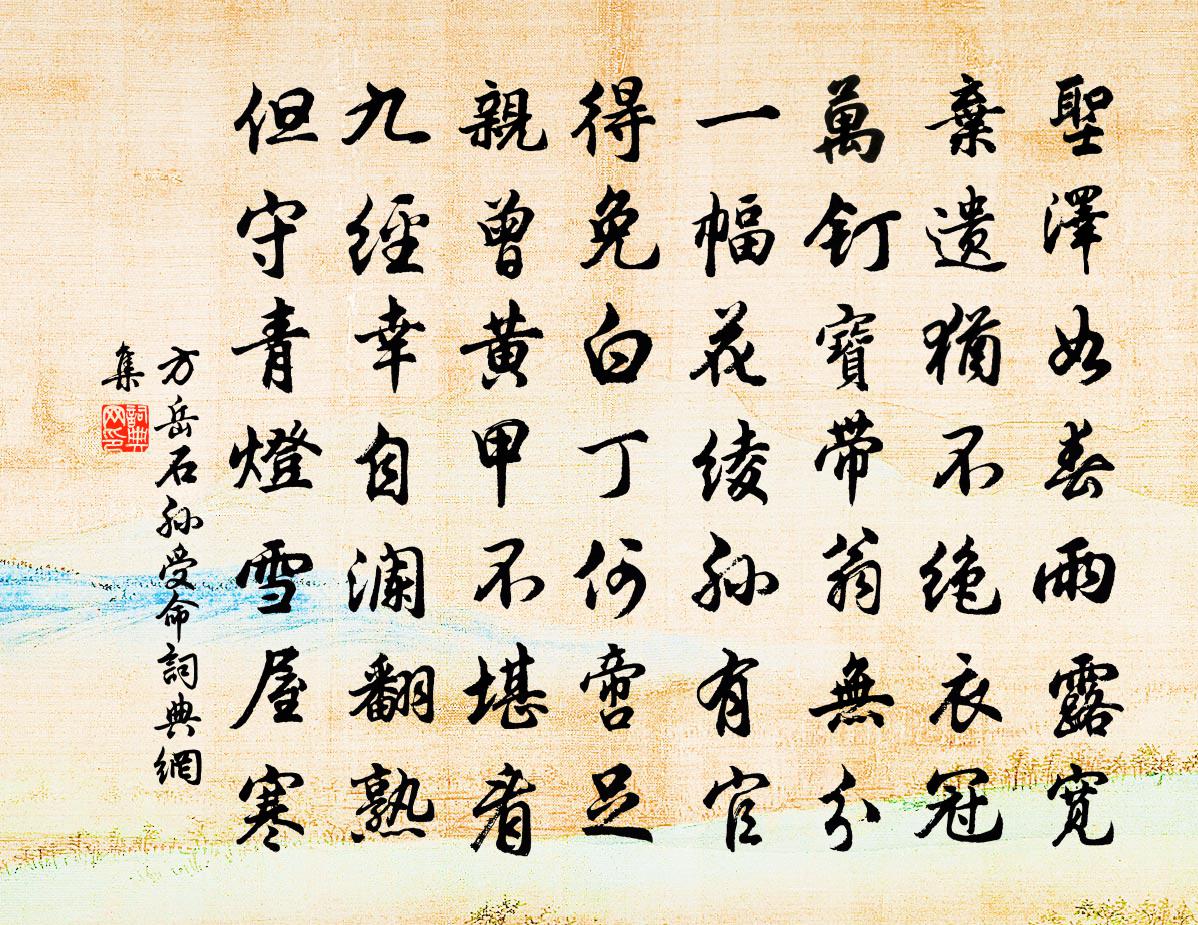 聖澤如春雨露寬
棄遺猶不絶衣冠
萬釘寶帶翁無分
一幅花綾孫有官
得免白丁何啻足
親曾黃甲不堪看
九經幸自瀾翻熟
但守青燈雪屋寒
方岳石孫受命詞典網
集
詞典網印